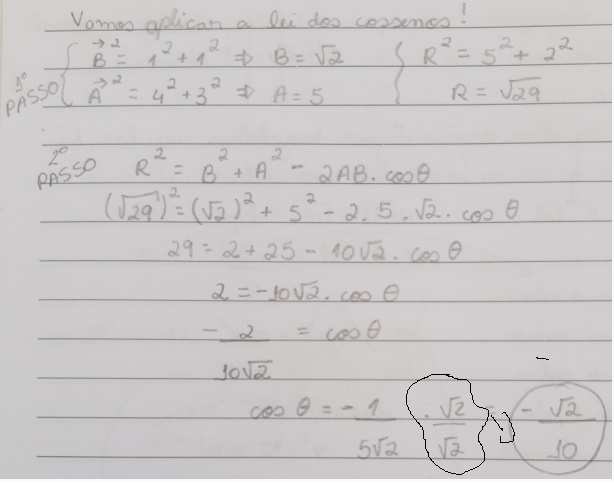 Vamos aplicar a lei dos cossenos!
1º PASSO { B⃗² = 1² + 1² ⇒ B = √2 { R² = 5² + 2²
A⃗² = 4² + 3² ⇒ A = 5 R = √29
2º PASSO R² = B² + A² - 2AB. cosθ
(√29)² = (√2)² + 5² - 2. 5. √2. cos θ
29 = 2 + 25 - 10√2. cos θ
2 = -10√2. cos θ
- 2/10√2 = cos θ
cos θ = - 1/5√2 . √2/√2 = - √2/10